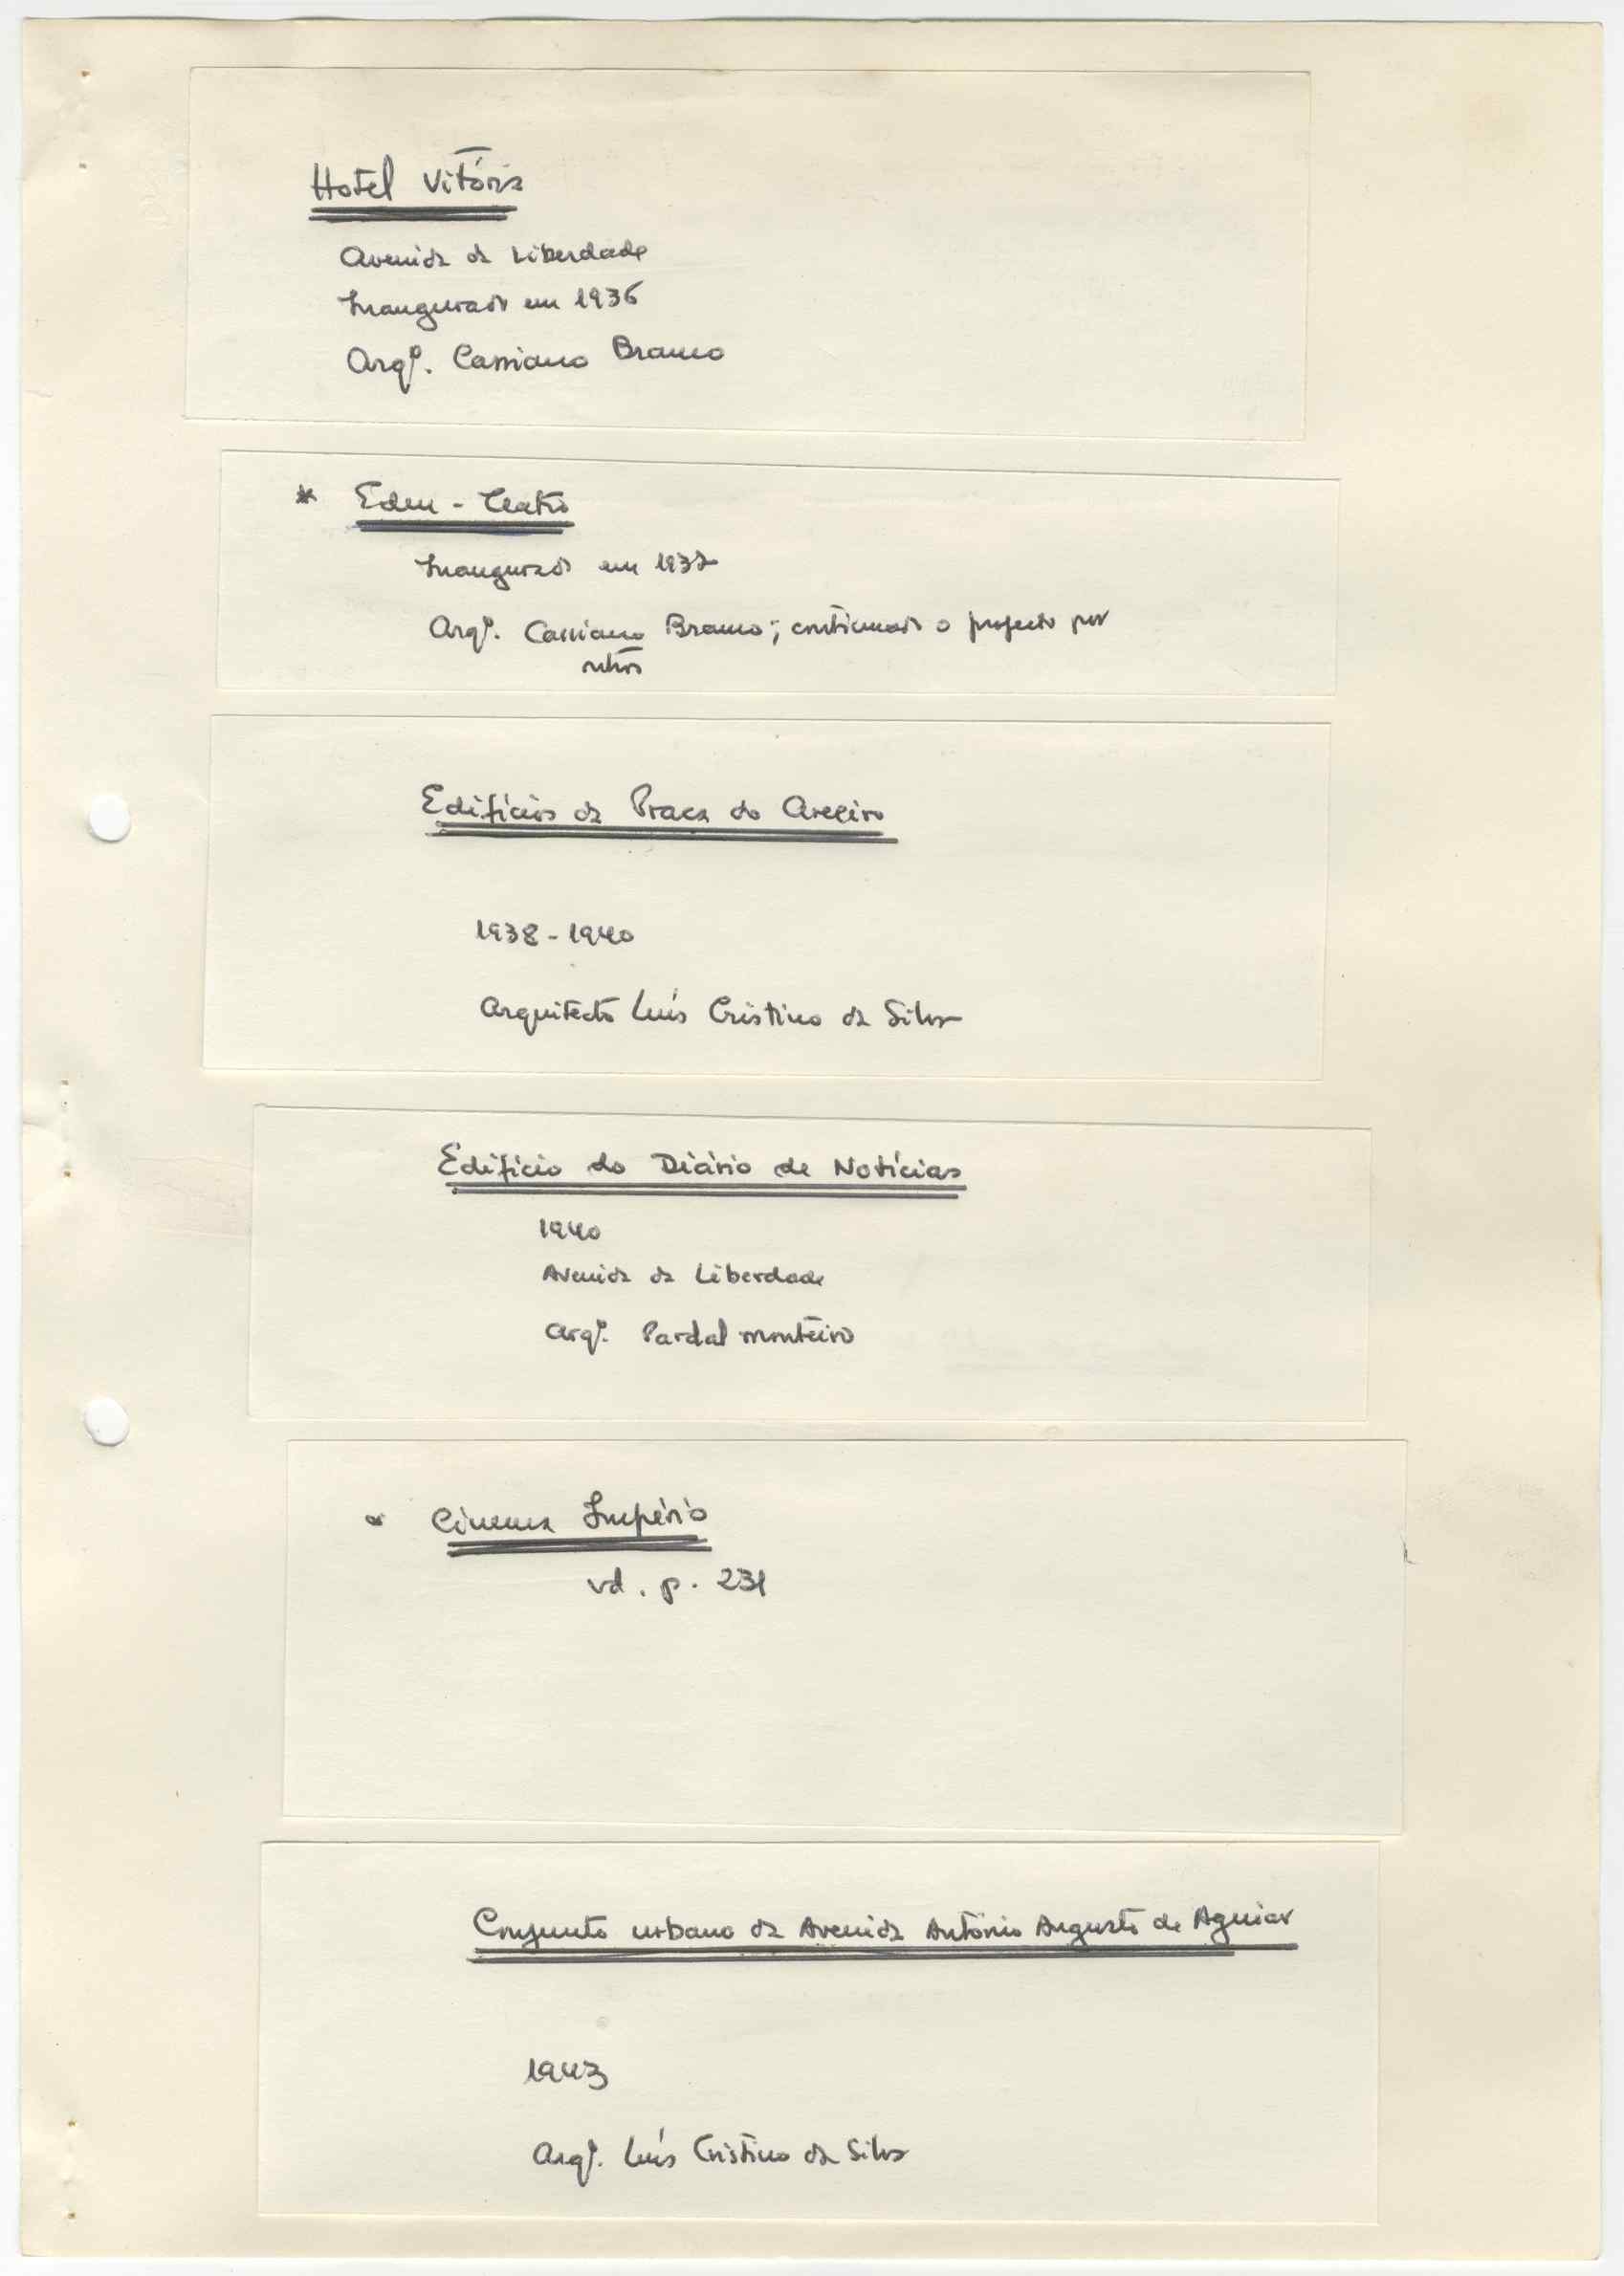 Hotel Vitória
Avenida da Liberdade
Inaugurado em 1936
Arqº. Cassiano Branco
* Eden - Teatro
Inaugurado em 1937
Arqº. Cassiano Branco; continuado o projecto por
outros
Edifícios da Praça do Areeiro
1938-1940
Arquitecto Luís Cristino da Silva
Edifício do Diário de Notícias
1940
Avenida da Liberdade
Arqº. Pardal Monteiro
* Cinema Império
vd. p. 231
Conjunto urbano da Avenida António Augusto de Aguiar
1943
Arqº. Luís Cristino da Silva